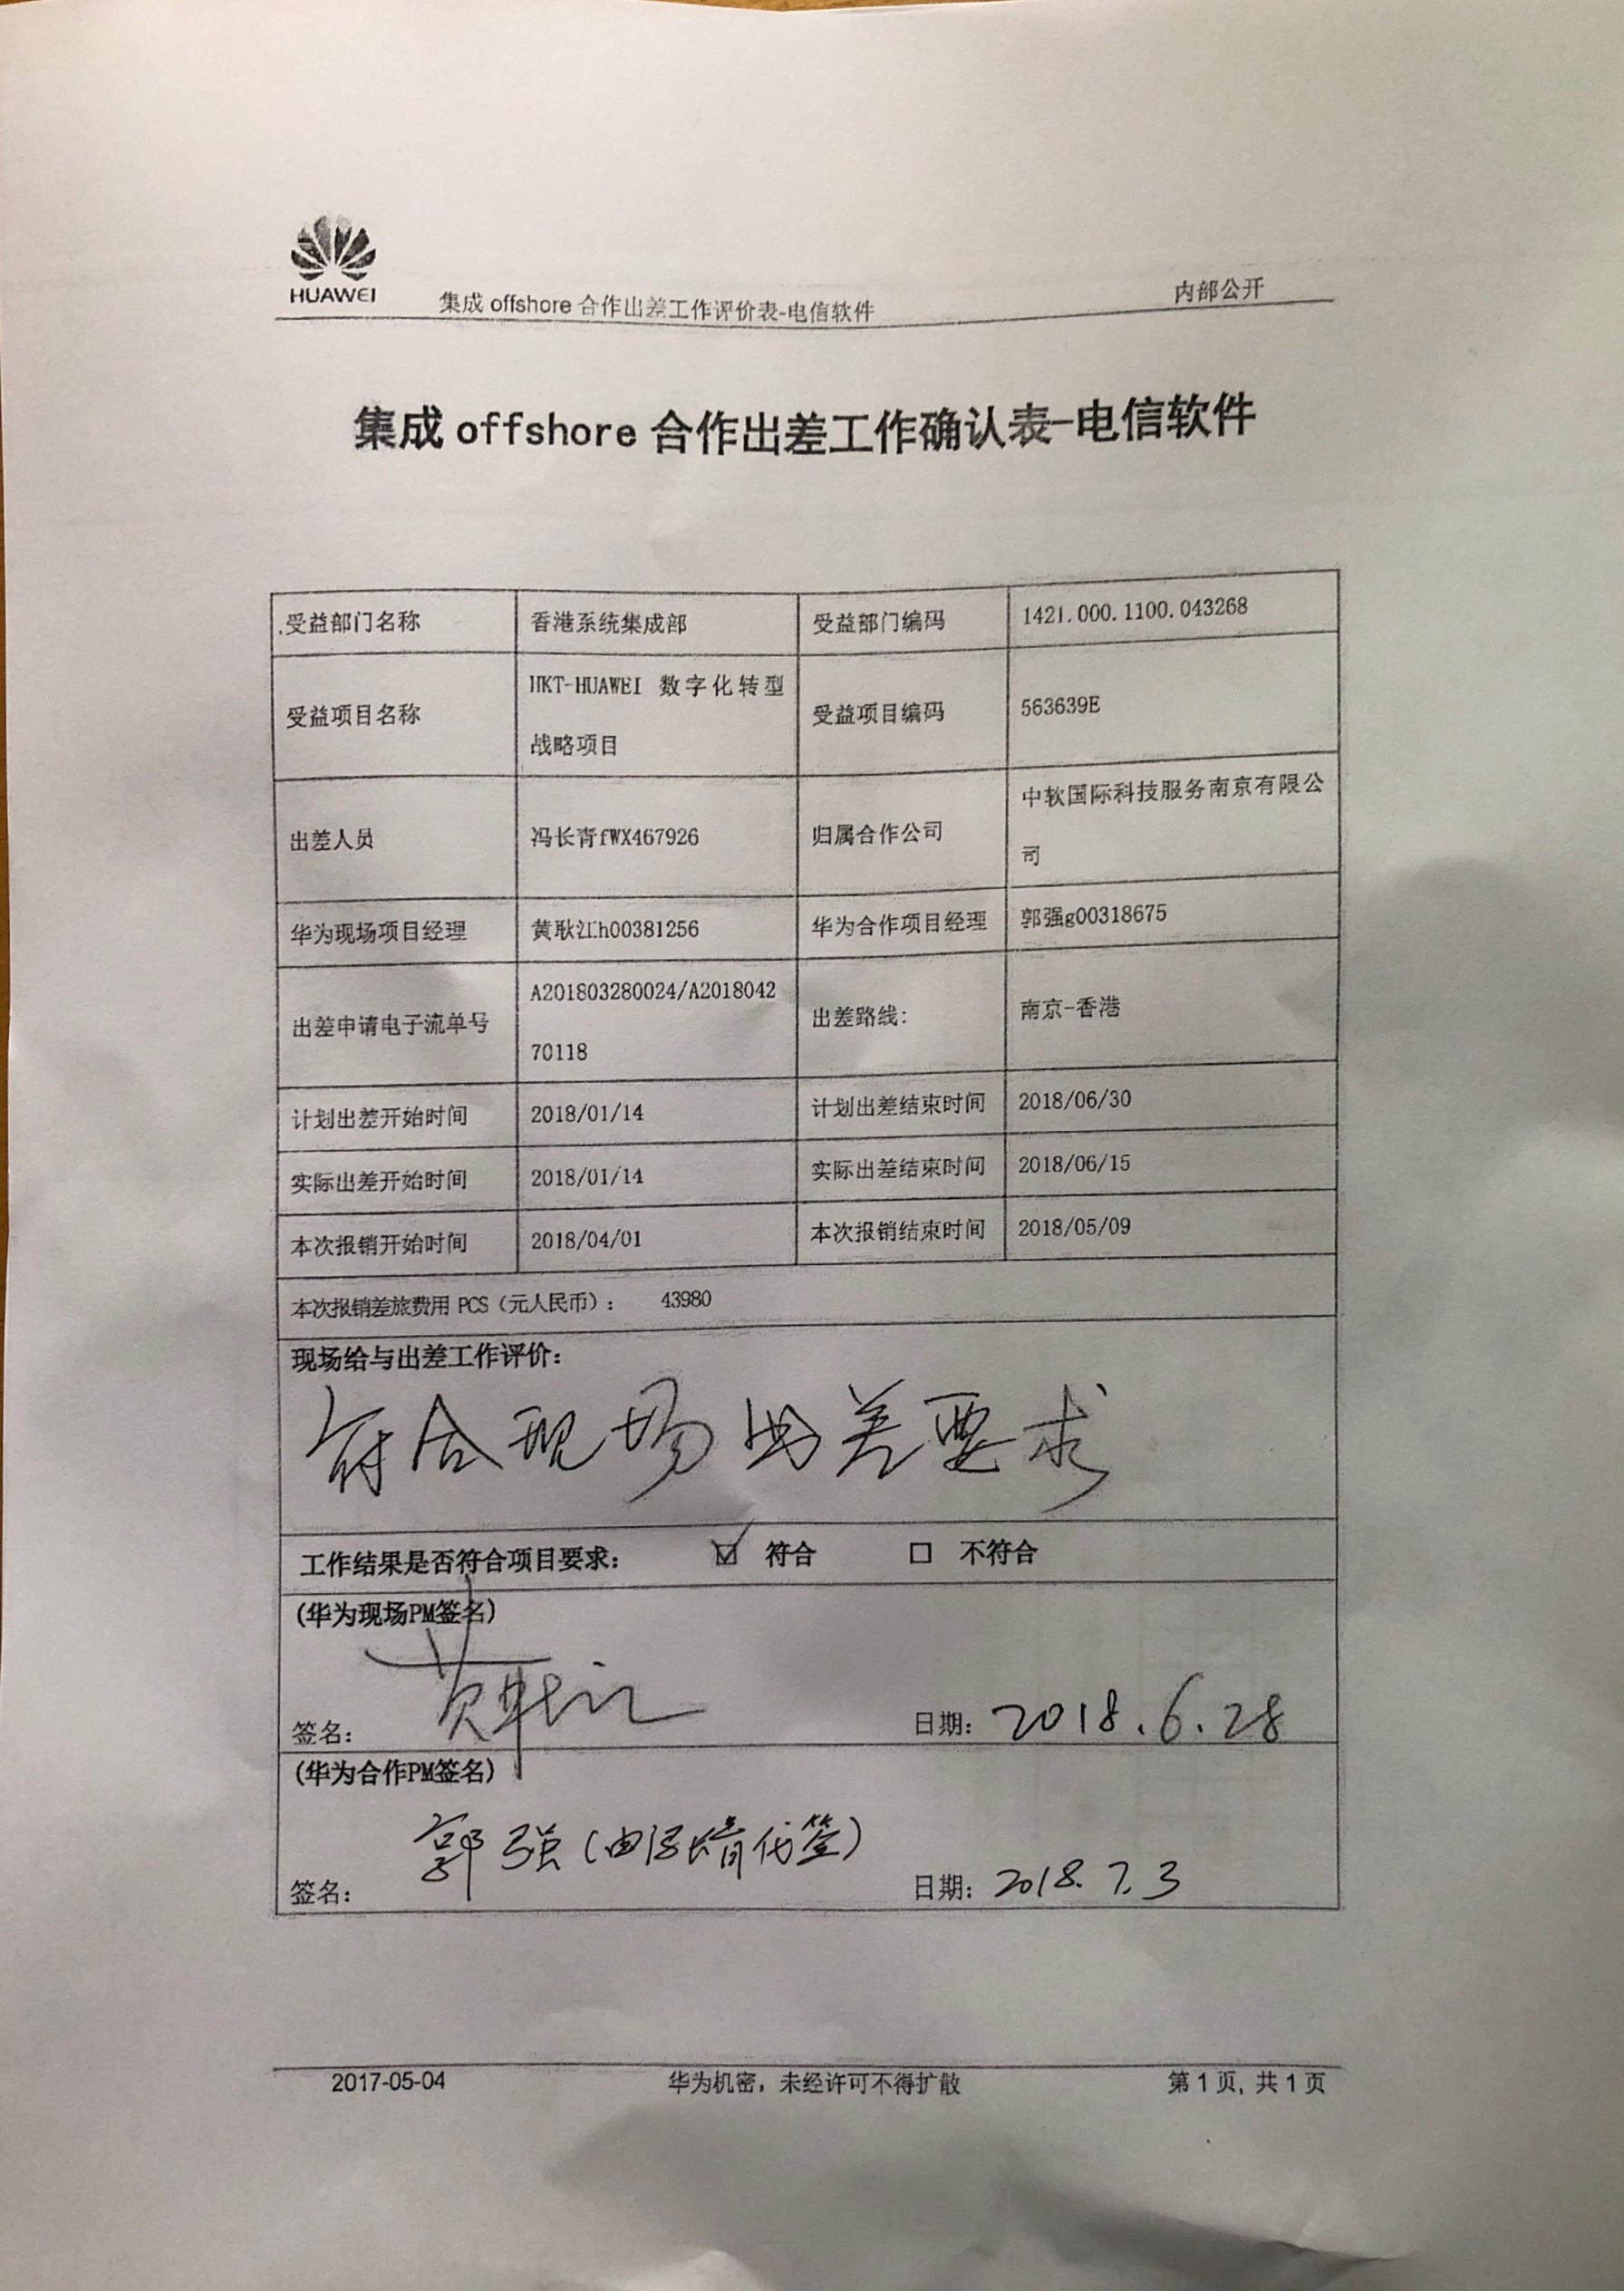 HUAWEI
集成 offshore 合作出差工作评价表-电信软件 内部公开
集成 offshore 合作出差工作确认表-电信软件
.受益部门名称 香港系统集成部 受益部门编码 1421.000.1100.043268
受益项目名称 HKT-HUAWEI 数字化转型 受益项目编码 563639E
战略项目
出差人员 冯长青fWX467926 归属合作公司 中软国际科技服务南京有限公
司
华为现场项目经理 黄耿江h00381256 华为合作项目经理 郭强g00318675
出差申请电子流单号 A201803280024/A2018042 出差路线: 南京-香港
70118
计划出差开始时间 2018/01/14 计划出差结束时间 2018/06/30
实际出差开始时间 2018/01/14 实际出差结束时间 2018/06/15
本次报销开始时间 2018/04/01 本次报销结束时间 2018/05/09
本次报销差旅费用 PCS（元人民币）： 43980
现场给与出差工作评价:
符合现场出差要求
工作结果是否符合项目要求: ☑ 符合 □ 不符合
(华为现场PM签名)
签名: 黄耿江 日期: 2018.6.28
(华为合作PM签名)
签名: 郭强(由冯长青代签) 日期: 2018.7.3
2017-05-04 华为机密，未经许可不得扩散 第1页, 共1页